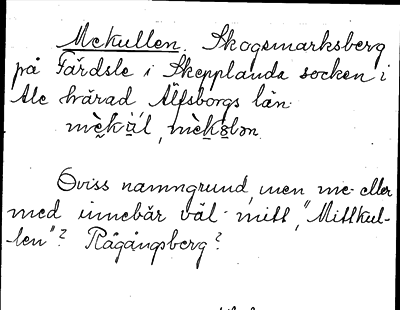 Mekullen. Skogsmarksberg
på Färdsle i Skepplanda socken i
Ale härad Älfsborgs län.
Oviss namngrund, men me- eller
med innebär väl mitt, "Mittkul-
len"? Rågångsberg?